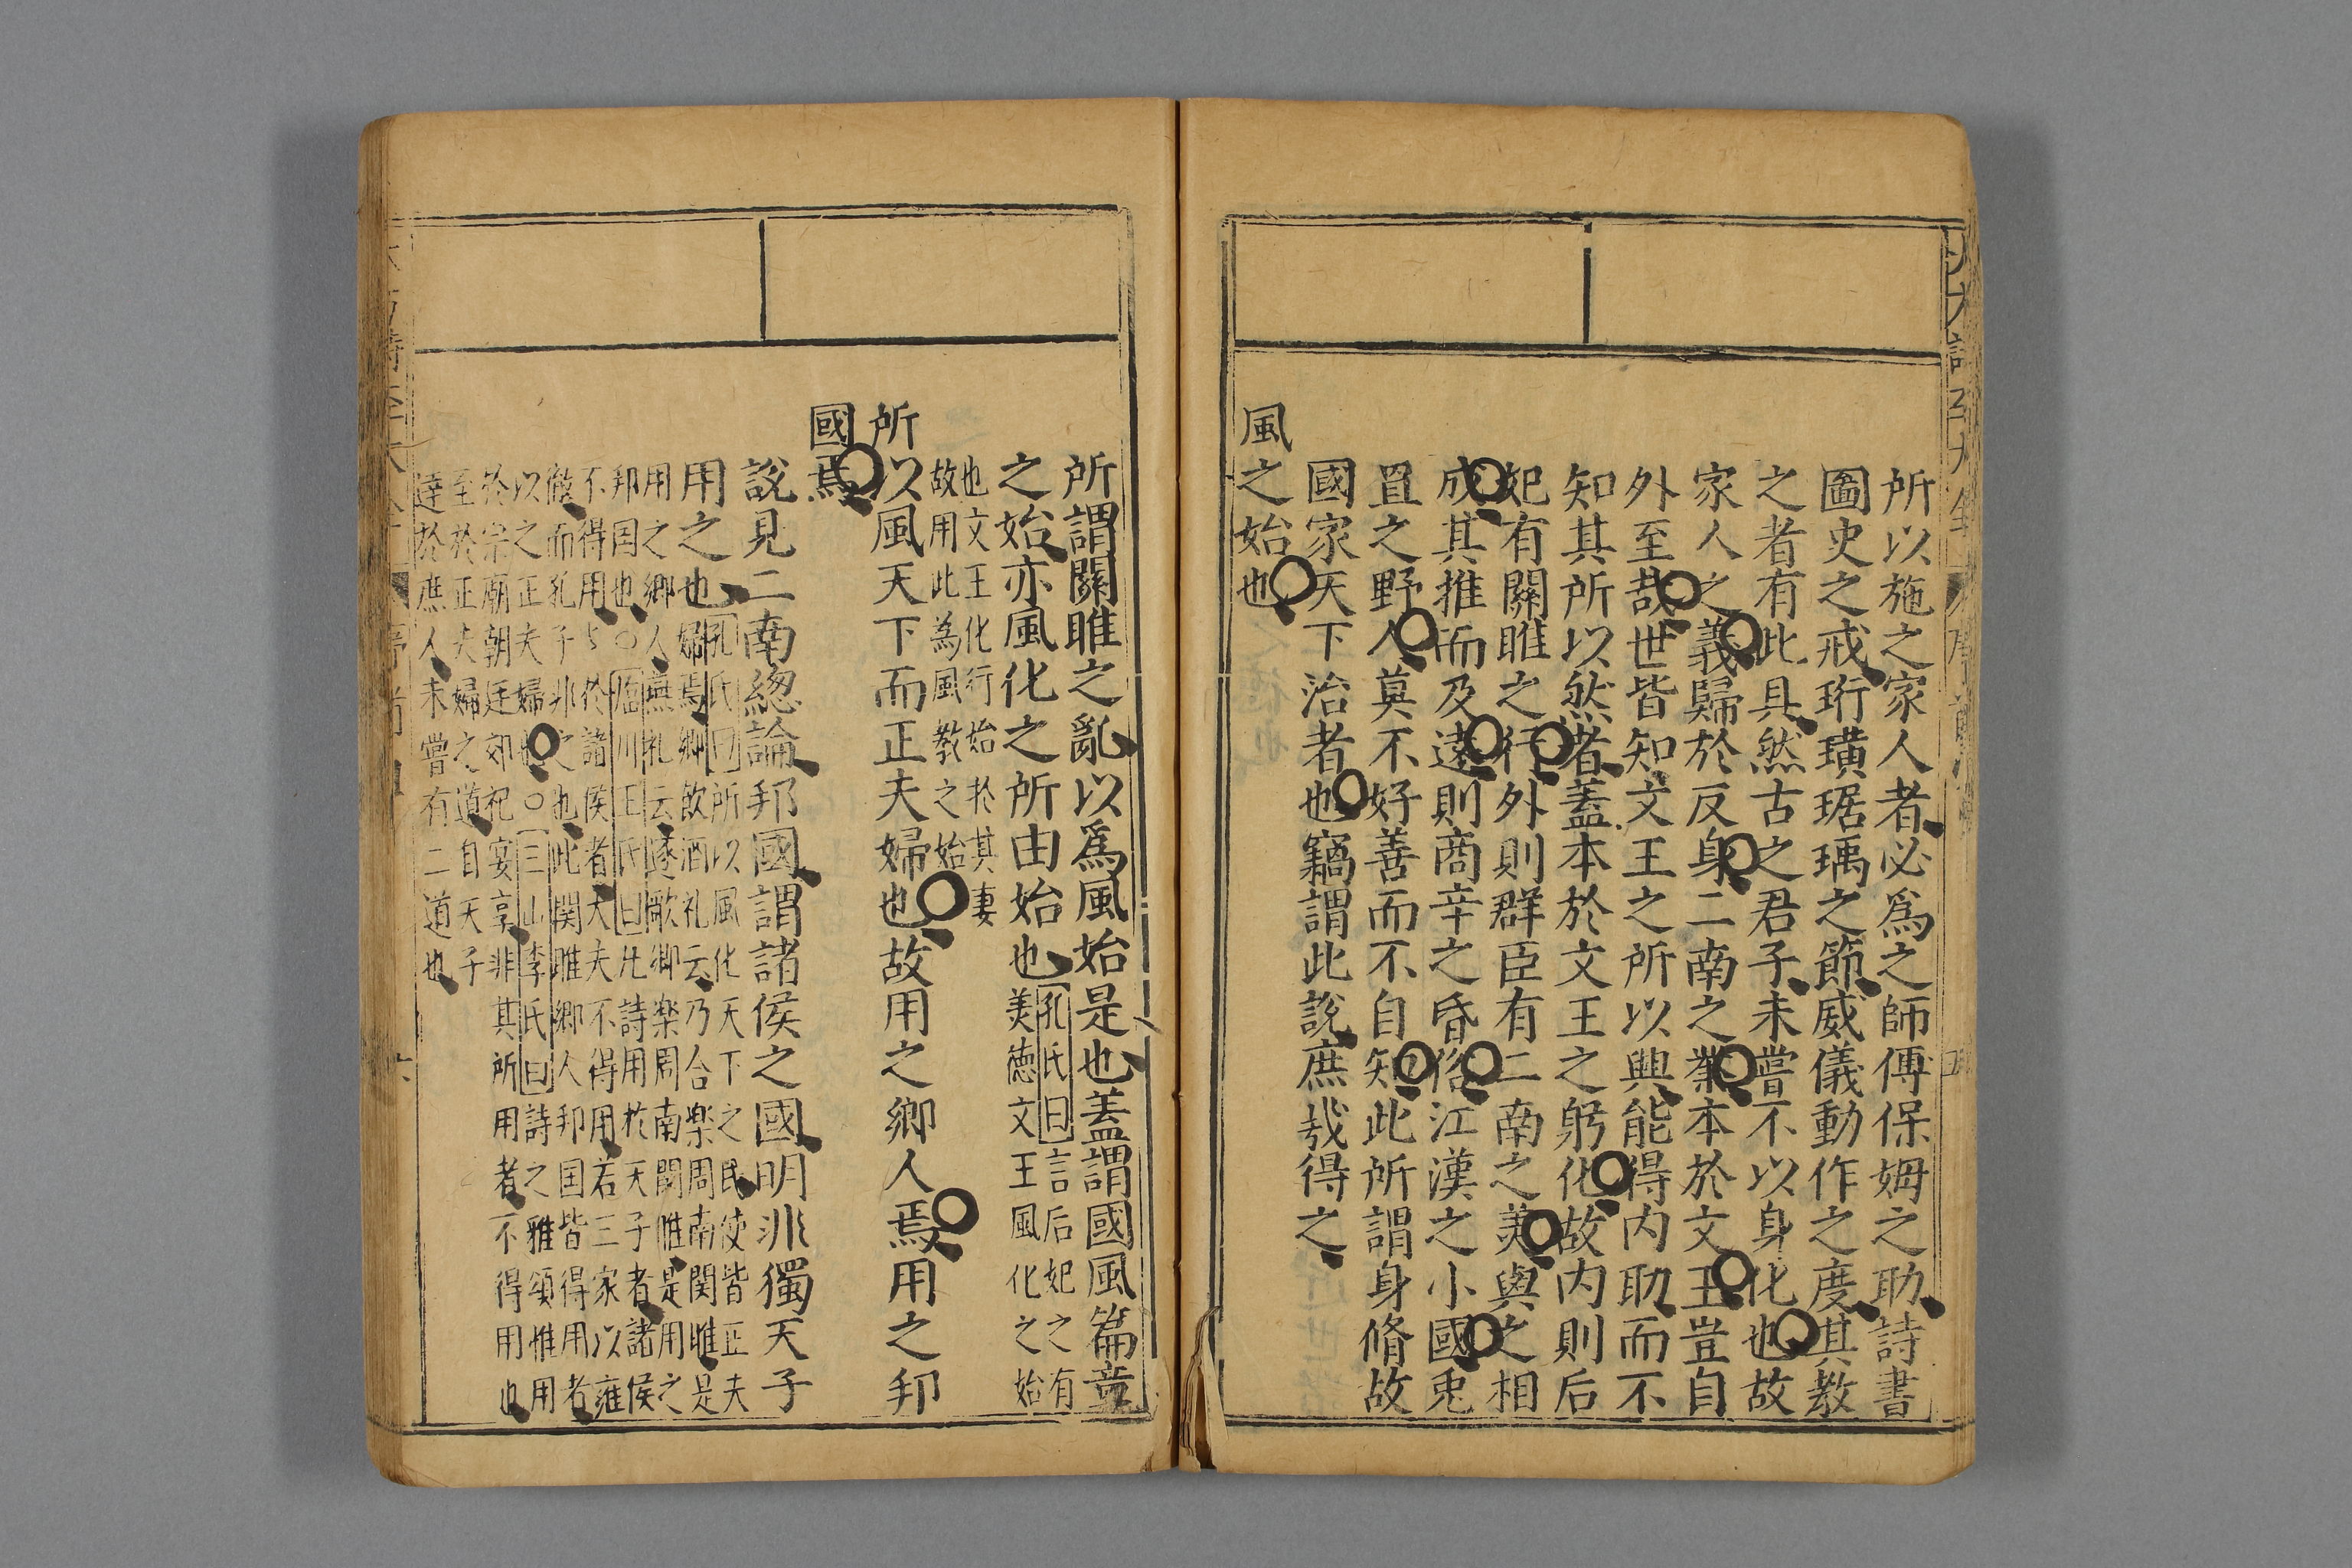 所以施之家人者必爲之師傅保姆之助詩書
圖史之戒珩璜琚瑀之節威儀動作之度其教
之者有此具然古之君子未嘗不以身化也故
家人之義歸於反身二南之業本於文王豈自
外至哉世皆知文王之所以興能得内助而不
知其所以然者蓋本於文王之躬化故内則后
妃有關雎之行外則群臣有二南之美與之相
成其推而及遠則商辛之昏俗江漢之小國兎
罝之野人莫不好善而不自知此所謂身脩故
國家天下治者也竊謂此說庶㢤得之
風之始也
所謂關雎之亂以爲風始是也蓋謂國風篇章
之始亦風化之所由始也
孔氏曰言后妃之有
美德文王風化之始
也文王化行始於其妻
故用此為風教之始
所以風天下而正夫婦也故用之鄉人焉用之邦
國焉
說見二南緫論邦國謂諸侯之國明非獨天子
用之也
孔氏曰所以風化天下之民使皆正夫
婦焉鄉飲酒礼云乃合楽周南関雎是
用之鄉人燕礼云遂歌鄉楽周南関雎是用之
邦国也○臨川王氏曰凡詩用於天子者諸侯
不得用与於諸侯者大夫不得用若三家以雍
徹而孔子非之也此関雎鄉人邦国皆得用者
以之正夫婦也○三山李氏曰詩之雅頌惟用
於宗廟朝廷郊祀宴享非其所用者不得用也
至於正夫婦之道自天子
達於庶人未嘗有二道也